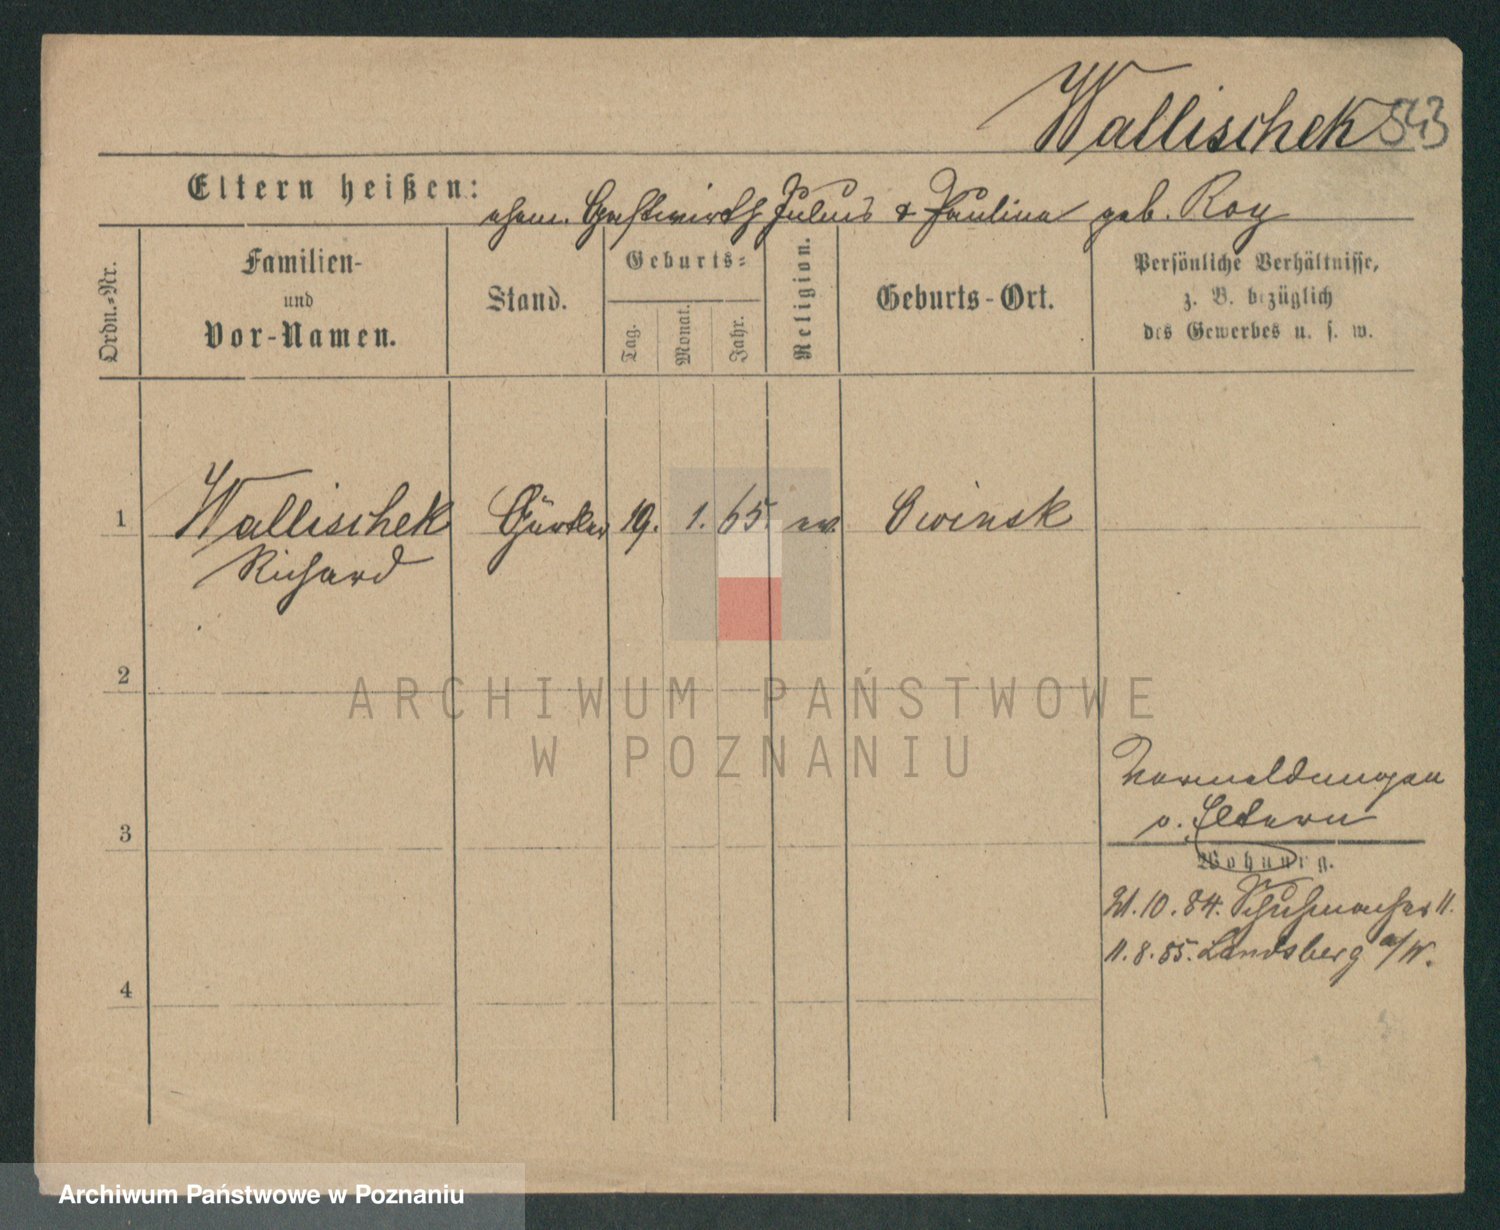 Wallischek 543
Eltern heißen: ehem. Gastwirth Julius & Paulina geb. Roy
Ordn.-Nr.
Familien-
und
Vor-Namen.
Stand.
Geburts-
Tag.
Monat.
Jahr.
Religion.
Geburts-Ort.
Persönliche Verhältnisse,
z. B. bezüglich
des Gewerbes u. s. w.
1 Wallischek Gürtler 19. 1. 65. ev. Owinsk
Richard
2
ARCHIWUM PAŃSTWOWE
W POZNANIU
3
v. Eltern
Wohnung.
21.10.84. Schuhmacher 11.
11.8.85. Landsberg a/W.
4
Archiwum Państwowe w Poznaniu